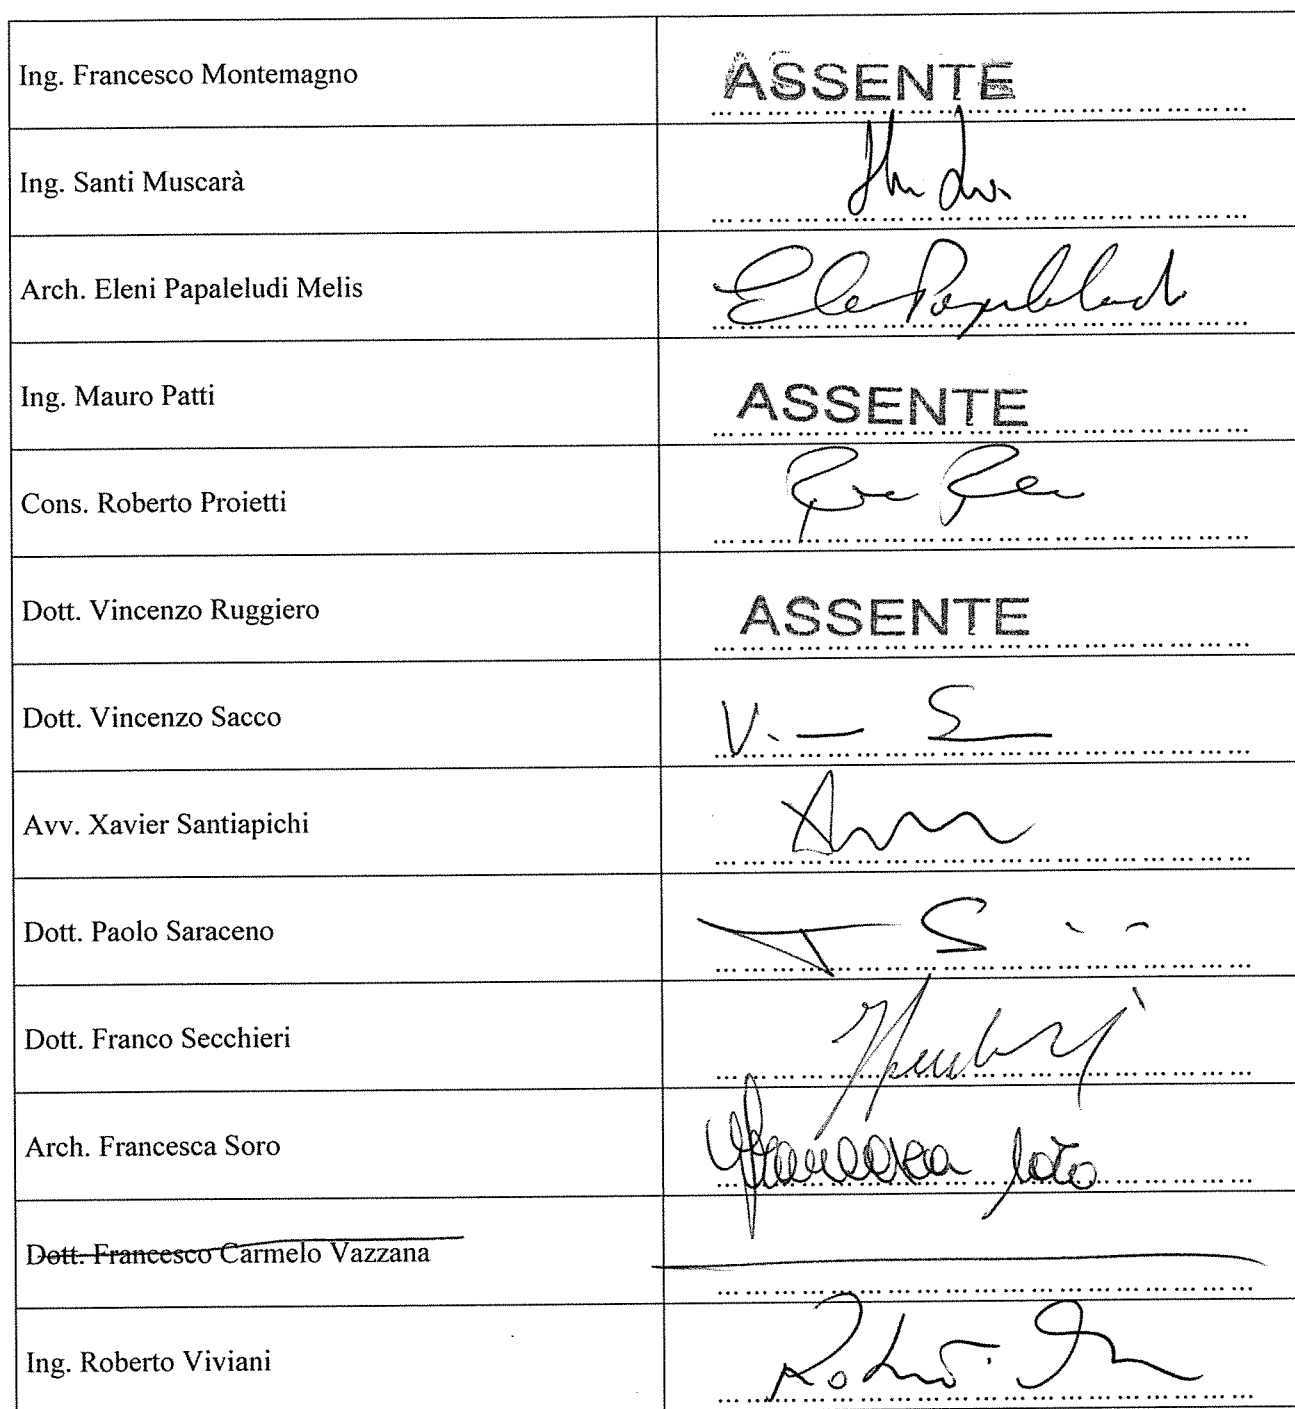 Ing. Francesco Montemagno ASSENTE
Ing. Santi Muscarà
Arch. Eleni Papaleludi Melis
Ing. Mauro Patti ASSENTE
Cons. Roberto Proietti
Dott. Vincenzo Ruggiero ASSENTE
Dott. Vincenzo Sacco
Avv. Xavier Santiapichi
Dott. Paolo Saraceno
Dott. Franco Secchieri
Arch. Francesca Soro Francesca Soro
Dott. Francesco Carmelo Vazzana
Ing. Roberto Viviani